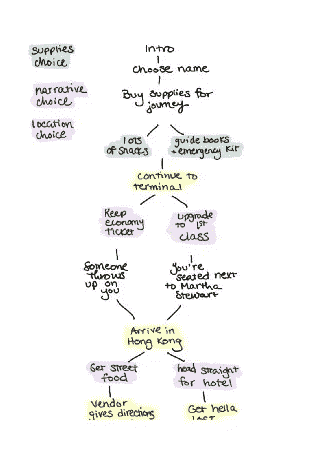 supplies
choice
narrative
choice
location
choice
Intro
choose name
Buy supplies for
journey
lots
of snacks
guide books
+ emergency kit
continue to
terminal
Keep
economy
ticket
upgrade
to 1st
class
Someone
throws
up on
you
You're
seated next
to Martha
Stewart
Arrive in
Hong Kong
Get street
food
head straight
for hotel
vendor
gives directions
Get hella